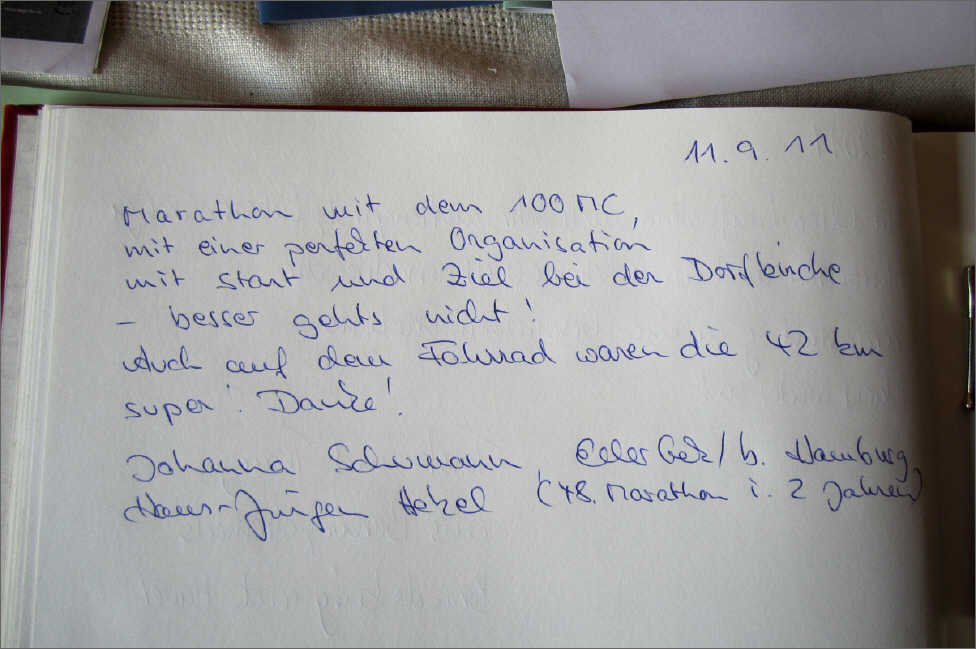 11.9.11
Marathon mit dem 100 MC,
mit einer perfekten Organisation
mit Start und Ziel bei der Dorfkirche
– besser gehts nicht!
Auch auf dem Fahrrad waren die 42 km
super! Danke!
Johanna Schumann, Ellerbek/b. Hamburg
Hans-Jürgen Hetzel (48. Marathon i. 2 Jahren)